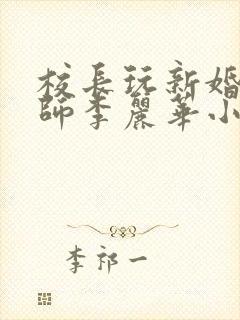 校長玩新婚
師李麗華小
李祁一